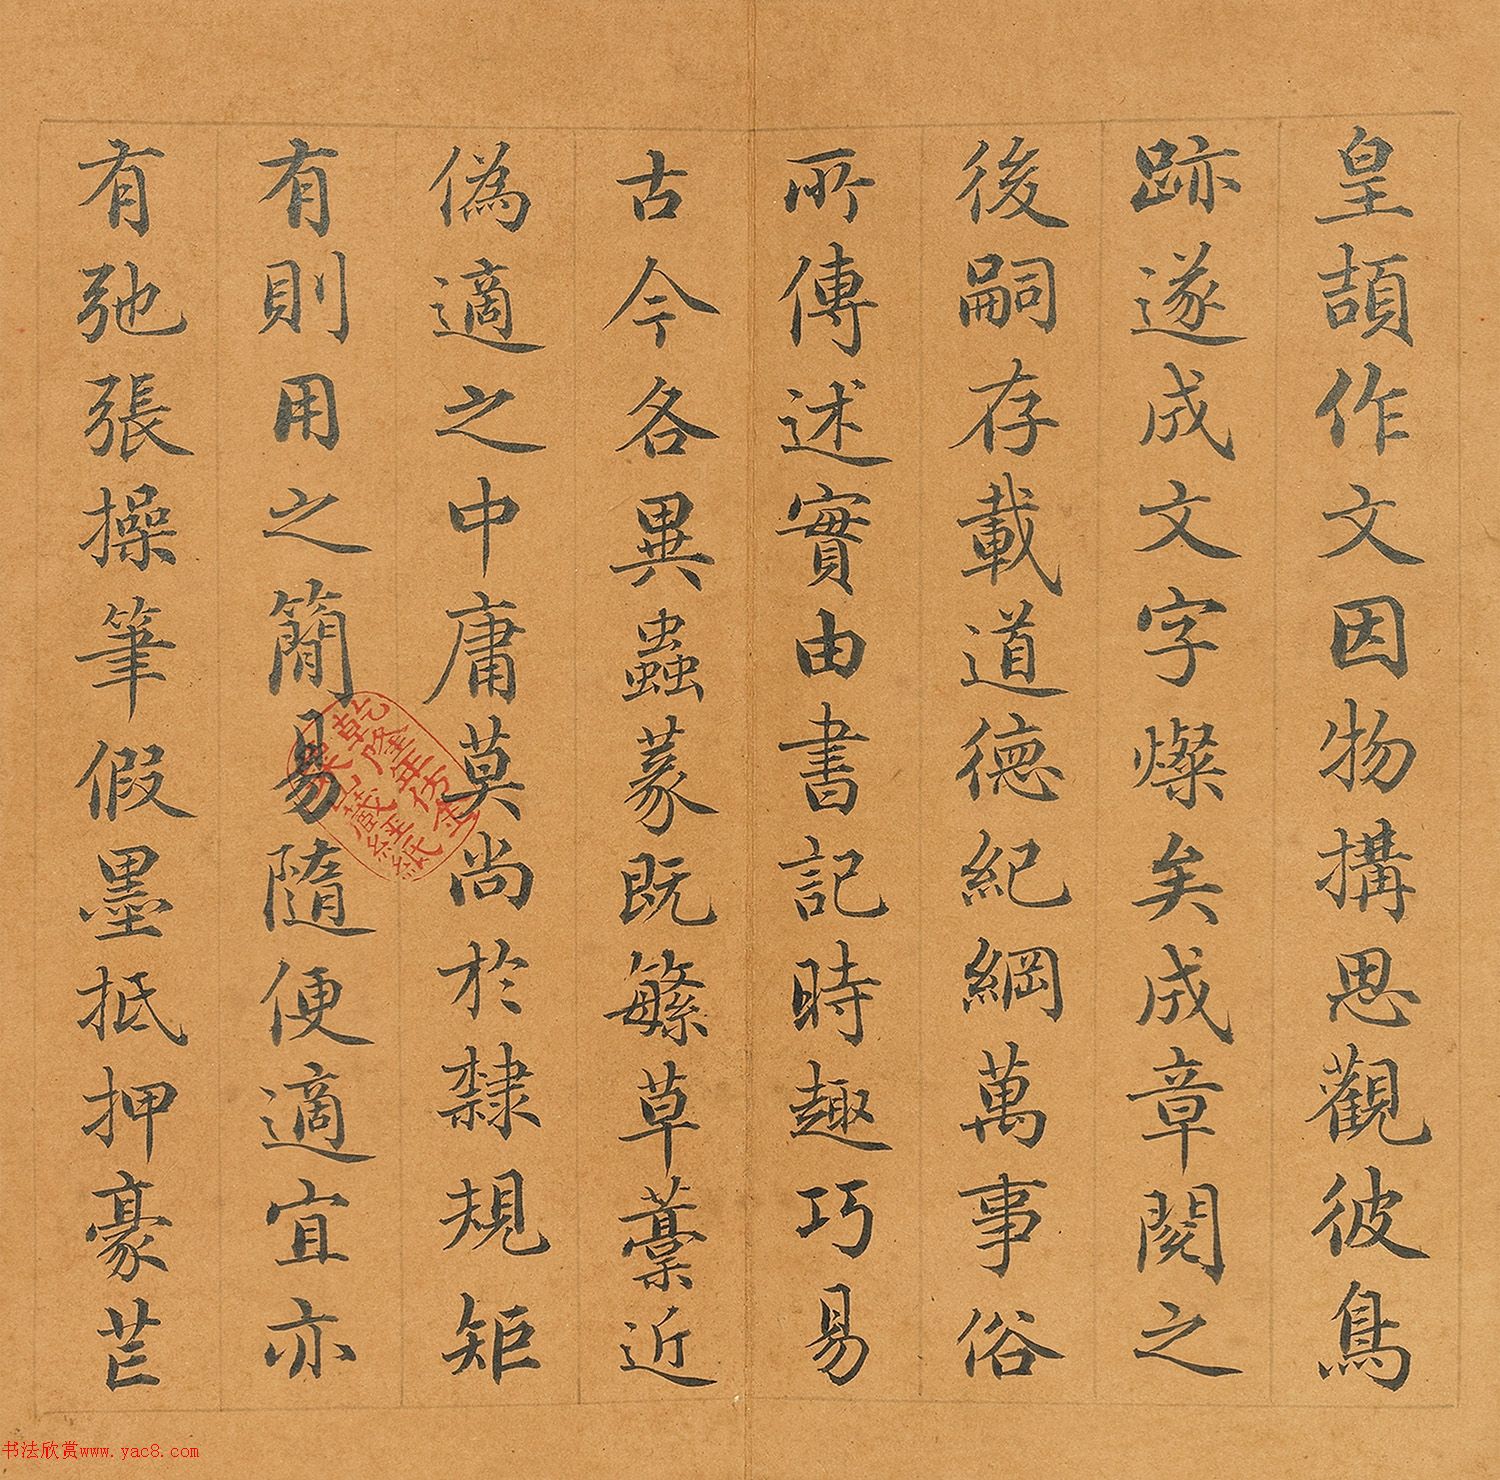 皇頡作文因物構思觀彼鳥
跡遂成文字燦矣成章閱之
後嗣存載道德紀綱萬事俗
所傳述實由書記時趣巧易
古今各異蟲篆既繁草藁近
偽適之中庸莫尚於隸規矩
有則用之簡易隨便適宜亦
有弛張操筆假墨抵押豪芒
乾隆年仿金
粟山藏經紙
书法欣赏www.yac8.com